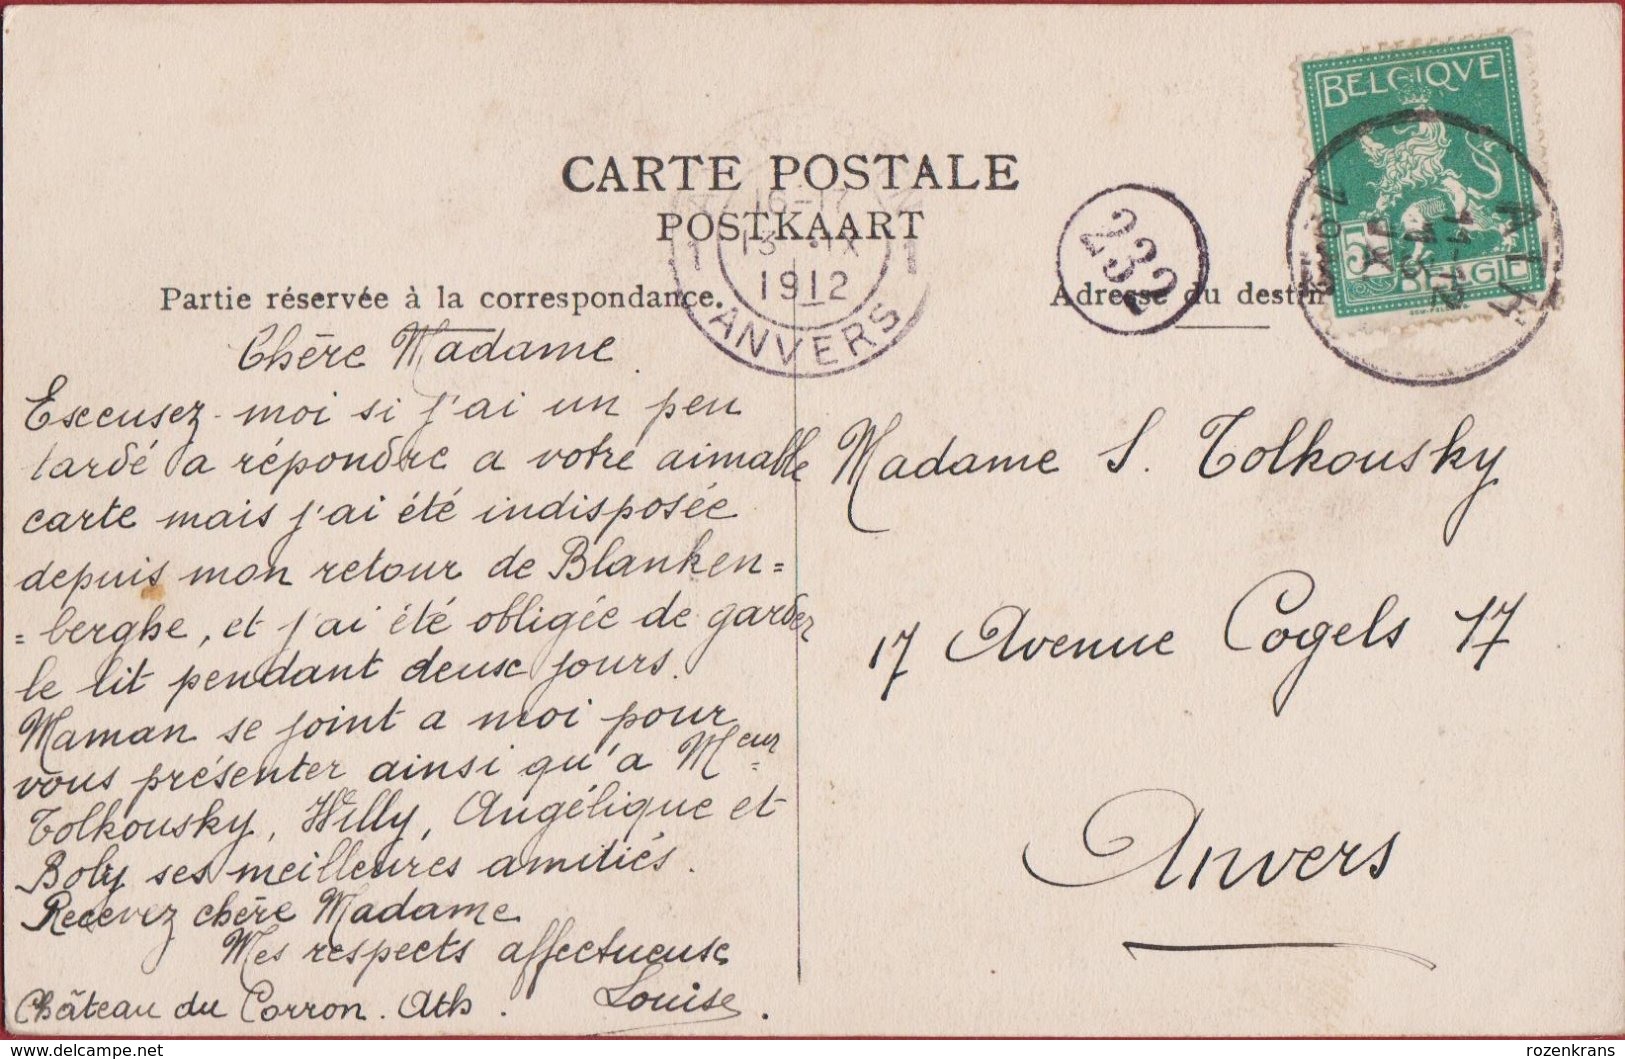 CARTE POSTALE
POSTKAART
Partie réservée à la correspondance.
Adresse du destin
BELGIQVE
5
BELGIE
ATH
1912
16-17
13 · IX
1 1
1912
ANVERS
232
Chère Madame
Excusez-moi si j'ai un peu
tardé a répondre a votre aimable
carte mais j'ai été indisposée
depuis mon retour de Blanken=
=berghe, et j'ai été obligée de garder
le lit pendant deux jours.
Maman se joint a moi pour
vous présenter ainsi qu'a Meur
Tolkousky, Willy, Angélique et
Boly ses meilleures amitiés.
Recevez chère Madame
Mes respects affectueuse
Louise.
Château du Corron. Ath.
Madame S. Tolkousky
17 Avenue Cogels 17
Anvers
delcampe.net
rozenkrans